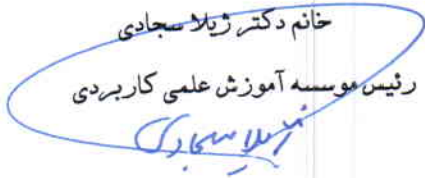 خانم دکتر ژیلا سجادی
رئیس موسسه آموزش علمی کاربردی
ژیلا سجادی